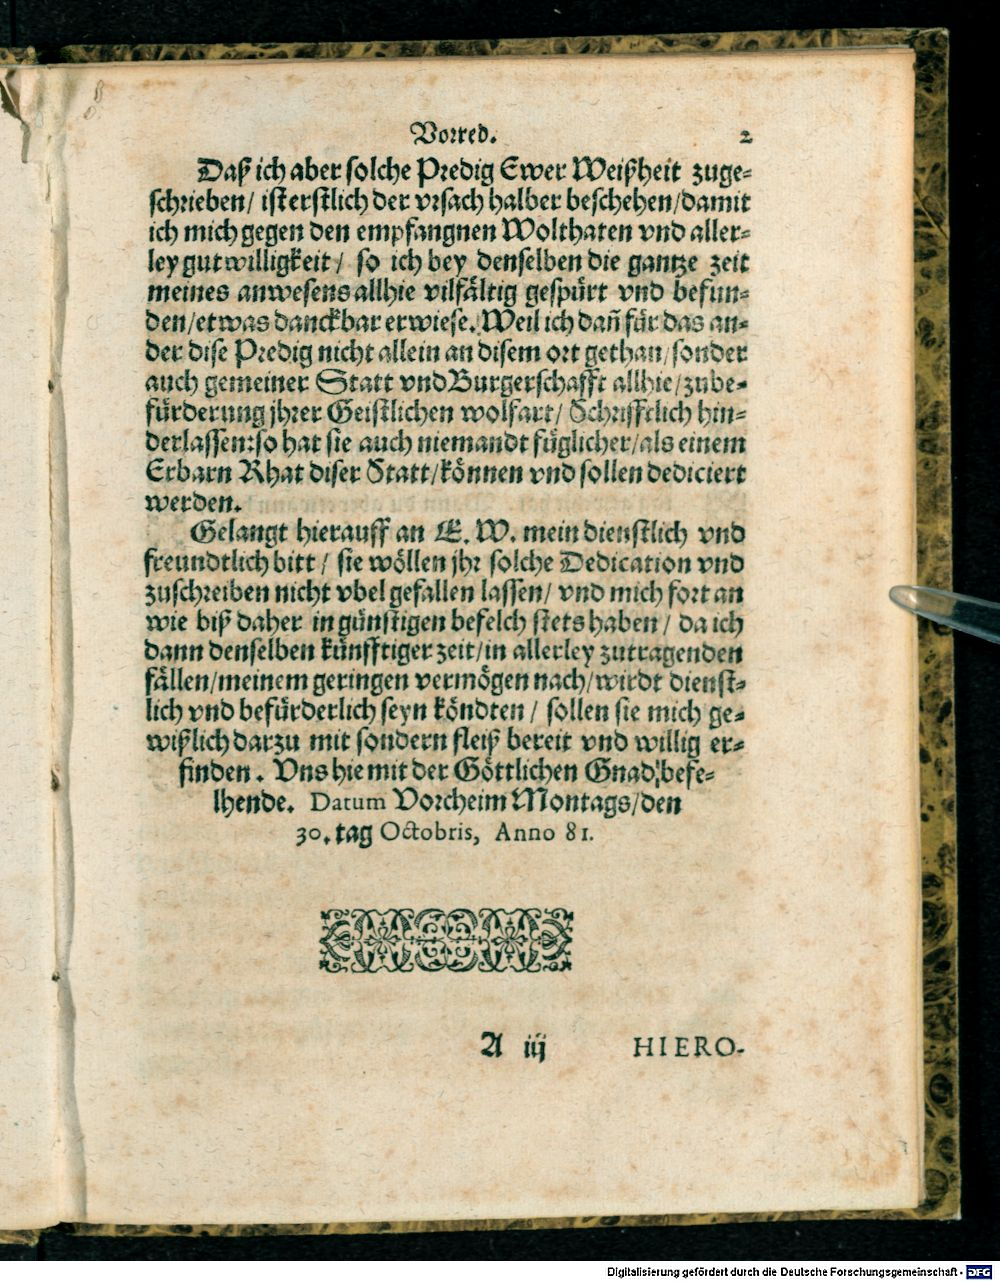 Vorred. 2
Daß ich aber solche Predig Ewer Weißheit zuge-
schrieben/ ist erstlich der vrsach halber beschehen/damit
ich mich gegen den empfangnen Wolthaten vnd aller-
ley gutwilligkeit/ so ich bey denselben die gantze zeit
meines anwesens allhie vilfältig gespürt vnd befun-
den/etwas danckbar erwiese. Weil ich dañ für das an-
der dise Predig nicht allein an disem ort gethan/sonder
auch gemeiner Statt vnd Burgerschafft allhie/zube-
fürderung jhrer Geistlichen wolfart/ Schrifftlich hin-
derlassen:so hat sie auch niemandt füglicher/als einem
Erbarn Rhat diser Statt/können vnd sollen dediciert
werden.
Gelangt hierauff an E. W. mein dienstlich vnd
freundtlich bitt/ sie wöllen jhr solche Dedication vnd
zuschreiben nicht vbel gefallen lassen/ vnd mich fort an
wie biß daher in günstigen befelch stets haben/ da ich
dann denselben künfftiger zeit/in allerley zutragenden
fällen/meinem geringen vermögen nach/wirdt dienst-
lich vnd befürderlich seyn köndten/ sollen sie mich ge-
wißlich darzu mit sondern fleiß bereit vnd willig er-
finden. Vns hie mit der Göttlichen Gnad befe-
lhende. Datum Vorcheim Montags/den
30. tag Octobris, Anno 81.
A iij HIERO-
Digitalisierung gefördert durch die Deutsche Forschungsgemeinschaft - DFG